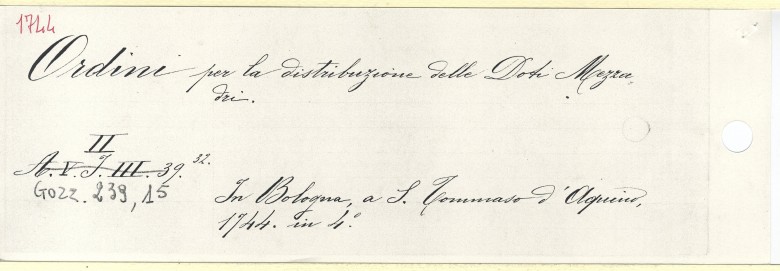 1744
Ordini per la distribuzione delle Doti Mezza,
dri.
II
A. V. J. III. 39. 32.
Gozz. 239, 15
In Bologna, a S. Tommaso d'Aquino,
1744. in 4.°